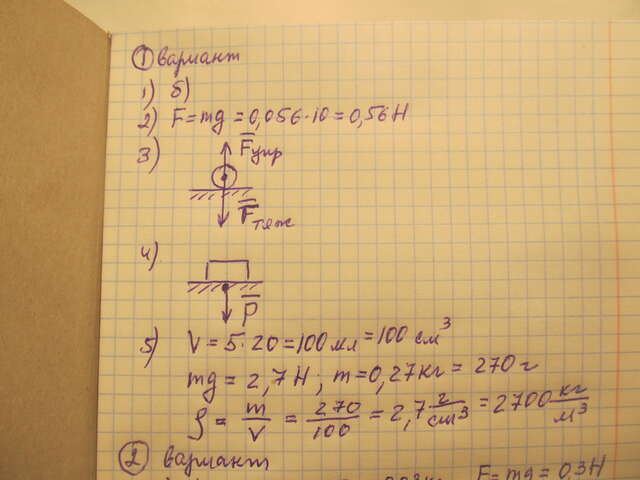 ① вариант
1) б)
2) F = mg = 0,056·10 = 0,56 Н
3) F̅упр
F̅тяж
4)
P̅
5) V = 5·20 = 100 мл = 100 см³
mg = 2,7 Н; m = 0,27 кг = 270 г
ρ = m/V = 270/100 = 2,7 г/см³ = 2700 кг/м³
② вариант
F = mg = 0,3 Н